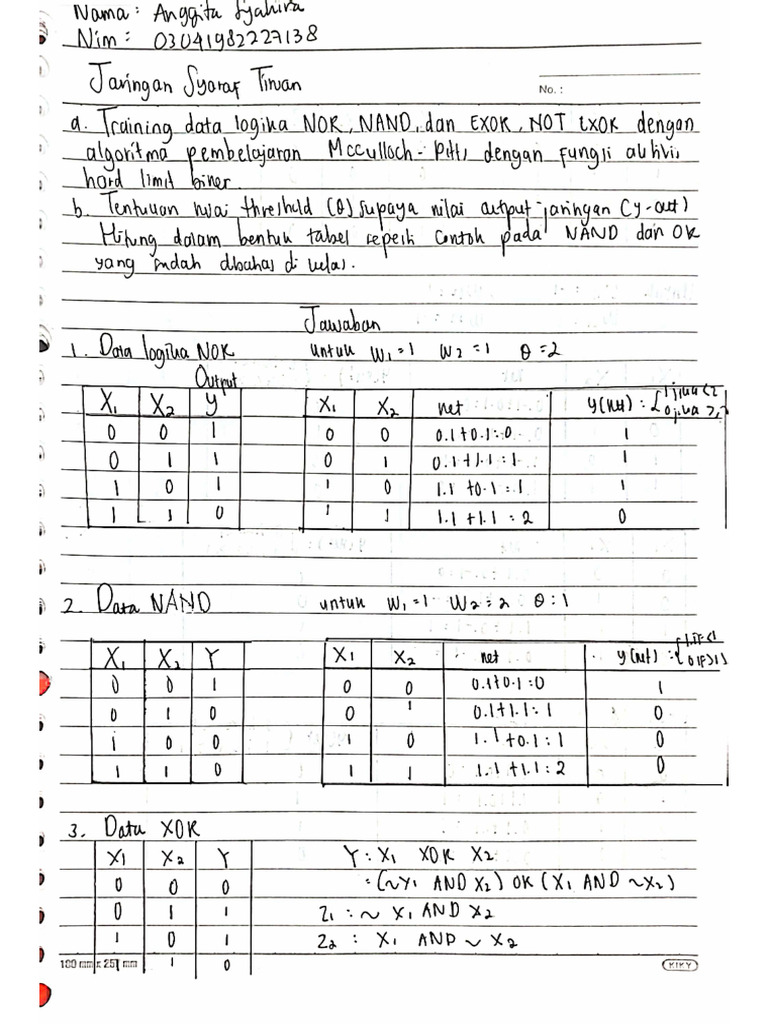 Nama : Anggita Syahira
Nim : 03041982227138
Jaringan Syaraf Tiruan
No. :
a. Training data logika NOR, NAND, dan EXOR, NOT EXOR dengan
algoritma pembelajaran Mcculloch - Pitts dengan fungsi aktivis
hard limit biner.
b. Tentukan nilai threshold (θ) supaya nilai output jaringan (y-out)
Hitung dalam bentuk tabel seperti contoh pada NAND dan OR
yang sudah dibahas di kelas.
Jawaban
1. Data logika NOR untuk W1 = 1 W2 = 1 θ = 2
Output
X1 X2 y X1 X2 net y(net) : { 1 jika < 2
0 jika ≥ 2
0 0 1 0 0 0.1+0.1 : 0 1
0 1 1 0 1 0.1+1.1 : 1 1
1 0 1 1 0 1.1 +0.1 : 1 1
1 1 0 1 1 1.1 +1.1 : 2 0
2. Data NAND untuk W1 = 1 W2 = 2 θ : 1
X1 X2 Y X1 X2 net y(net) : { 1 if < 1
0 if ≥ 1
0 0 1 0 0 0.1+0.1 : 0 1
0 1 0 0 1 0.1+1.1 : 1 0
1 0 0 1 0 1.1+0.1 : 1 0
1 1 0 1 1 1.1 +1.1 : 2 0
3. Data XOR
X1 X2 Y Y : X1 XOR X2
0 0 0 : (~X1 AND X2) OR (X1 AND ~X2)
0 1 1 Z1 : ~ X1 AND X2
1 0 1 Z2 : X1 AND ~ X2
1 1 0
180 mm x 251 mm KIKY